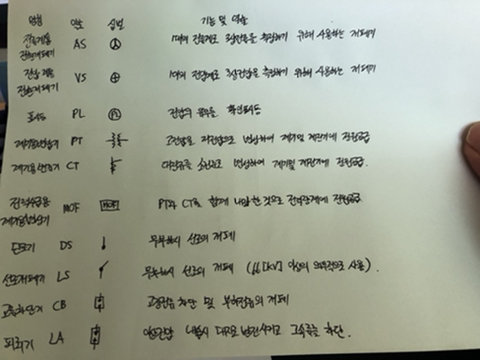 명칭 약호 심벌 기능 및 역할
전류계용 전환개폐기 AS 1대의 전류계로 3상전류를 측정하기 위해 사용하는 개폐기
전압계용 전환개폐기 VS 1대의 전압계로 3상전압을 측정하기 위해 사용하는 개폐기
표시등 PL PL 전압의 유무를 확인표시등
계기용변압기 PT 고전압을 저전압으로 변성하여 계기및 계전기에 전원공급
계기용변류기 CT 대전류를 소전류로 변성하여 계기및 계전기에 전원공급.
전력수급용 계기용변성기 MOF MOF PT와 CT를 함께 내장한 것으로 전력량계에 전원공급
단로기 DS 무부하시 선로의 개폐
선로개폐기 LS 무부하시 선로의 개폐 (66[kV] 이상의 사용).
CB 고장전류 차단 및 부하전류의 개폐
피뢰기 LA 이상전압 내습시 대지로 방전시키고 그 속류를 차단.